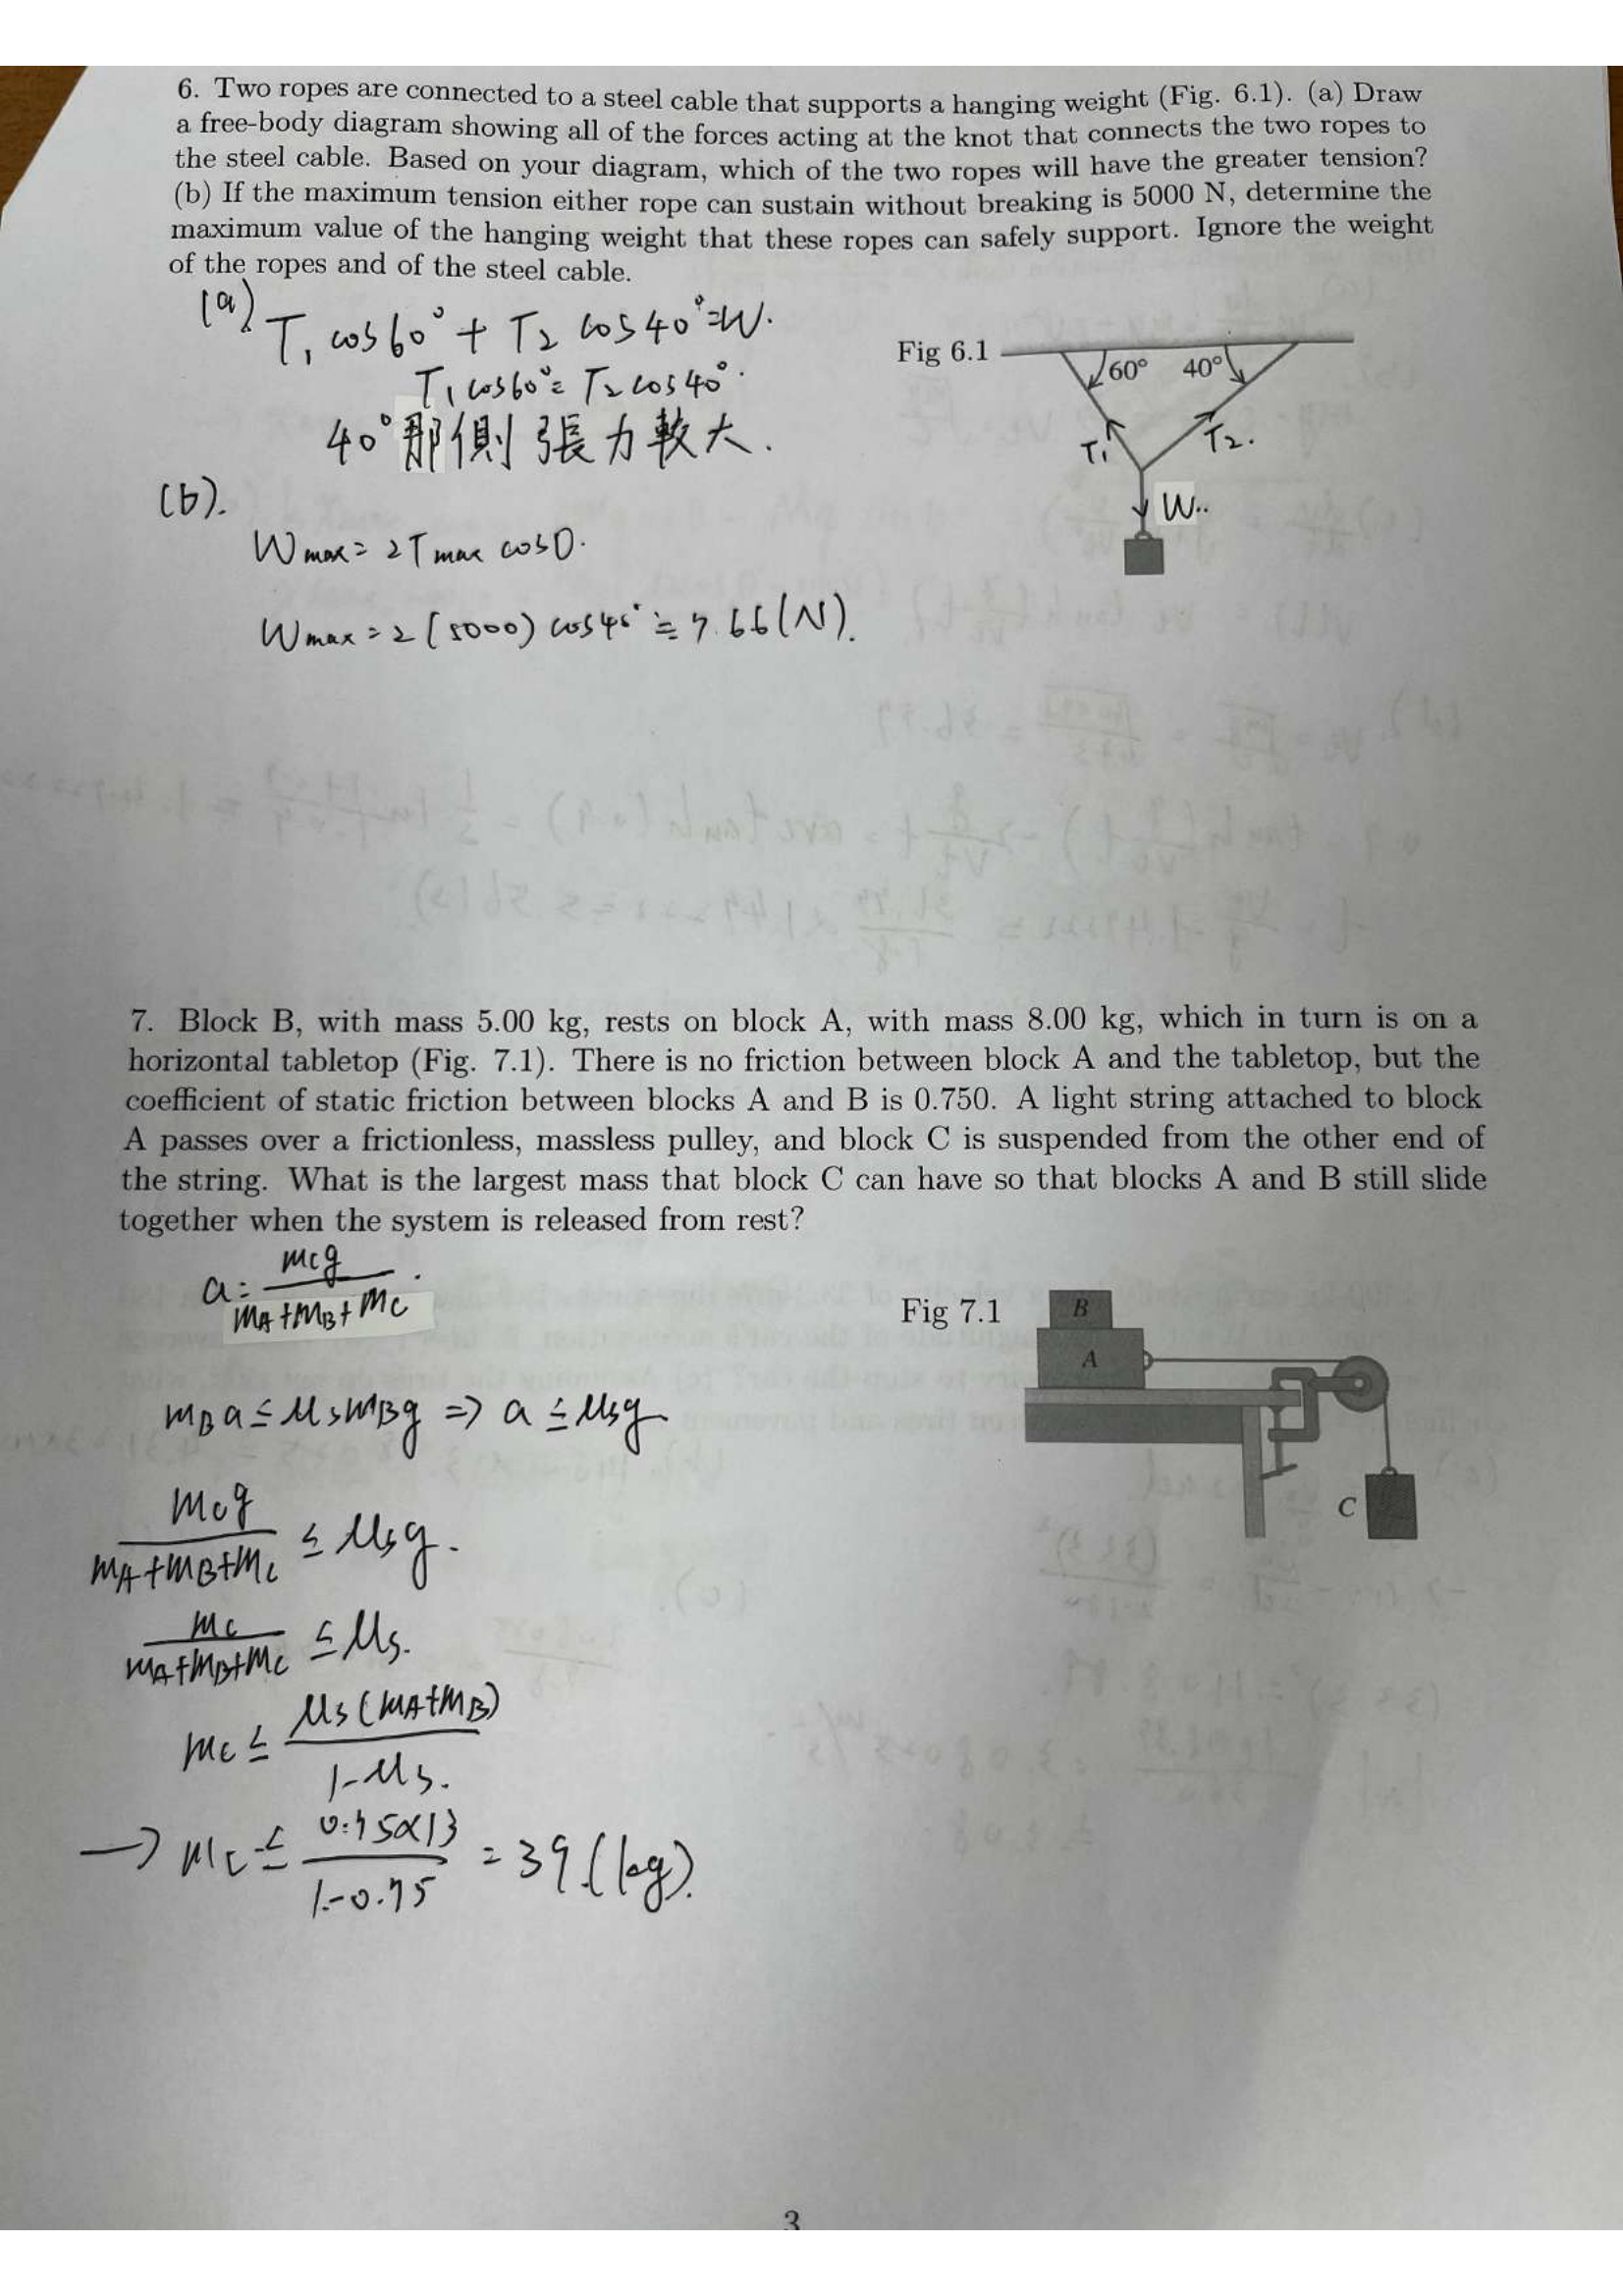 6. Two ropes are connected to a steel cable that supports a hanging weight (Fig. 6.1). (a) Draw
a free-body diagram showing all of the forces acting at the knot that connects the two ropes to
the steel cable. Based on your diagram, which of the two ropes will have the greater tension?
(b) If the maximum tension either rope can sustain without breaking is 5000 N, determine the
maximum value of the hanging weight that these ropes can safely support. Ignore the weight
of the ropes and of the steel cable.
(a)
T₁ cos60° + T₂ cos40° = W.
T₁ cos60° = T₂ cos40°.
40° 那側張力較大.
Fig 6.1
60° 40°
T₁ T₂.
W..
(b).
Wmax = 2Tmax cosθ.
Wmax = 2 (5000) cos40° ≒ 7.66 (N).
7. Block B, with mass 5.00 kg, rests on block A, with mass 8.00 kg, which in turn is on a
horizontal tabletop (Fig. 7.1). There is no friction between block A and the tabletop, but the
coefficient of static friction between blocks A and B is 0.750. A light string attached to block
A passes over a frictionless, massless pulley, and block C is suspended from the other end of
the string. What is the largest mass that block C can have so that blocks A and B still slide
together when the system is released from rest?
a = mcg / (mA+mB+mc).
Fig 7.1
B
A
C
mBa ≤ μsmBg => a ≤ μsg
mcg / (mA+mB+mc) ≤ μsg.
mc / (mA+mB+mc) ≤ μs.
mc ≤ μs(mA+mB) / (1-μs).
→ mc ≤ 0.75×13 / (1-0.75) = 39 (kg).
3